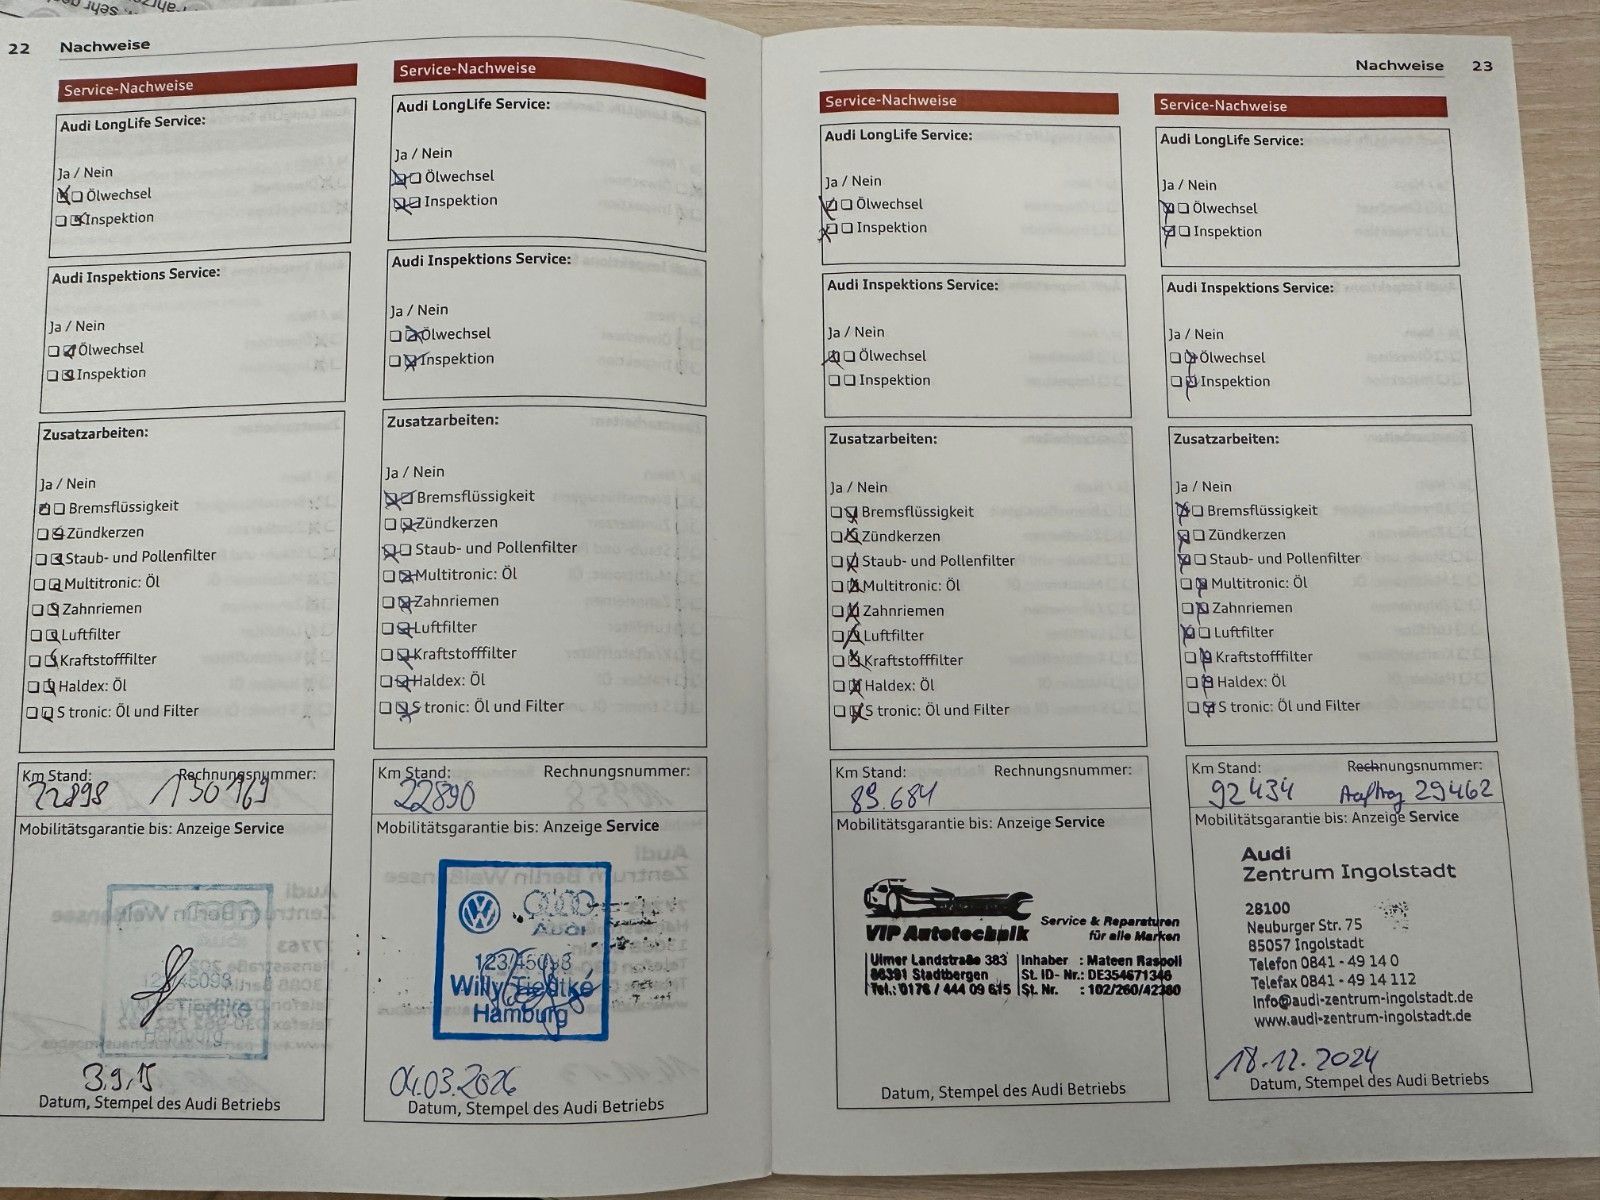 22 Nachweise
Service-Nachweise
Audi LongLife Service:
Ja / Nein
Ölwechsel
Inspektion
Audi Inspektions Service:
Ja / Nein
Ölwechsel
Inspektion
Zusatzarbeiten:
Ja / Nein
Bremsflüssigkeit
Zündkerzen
Staub- und Pollenfilter
Multitronic: Öl
Zahnriemen
Luftfilter
Kraftstofffilter
Haldex: Öl
S tronic: Öl und Filter
Km Stand: Rechnungsnummer:
22898 130169
Mobilitätsgarantie bis: Anzeige Service
123/45093
Tiedtke
Hamburg
3.9.15
Datum, Stempel des Audi Betriebs
Service-Nachweise
Audi LongLife Service:
Ja / Nein
Ölwechsel
Inspektion
Audi Inspektions Service:
Ja / Nein
Ölwechsel
Inspektion
Zusatzarbeiten:
Ja / Nein
Bremsflüssigkeit
Zündkerzen
Staub- und Pollenfilter
Multitronic: Öl
Zahnriemen
Luftfilter
Kraftstofffilter
Haldex: Öl
S tronic: Öl und Filter
Km Stand: Rechnungsnummer:
22890
Mobilitätsgarantie bis: Anzeige Service
Audi
123/45093
Willy Tiedtke
Hamburg
04.03.2026
Datum, Stempel des Audi Betriebs
Nachweise 23
Service-Nachweise
Audi LongLife Service:
Ja / Nein
Ölwechsel
Inspektion
Audi Inspektions Service:
Ja / Nein
Ölwechsel
Inspektion
Zusatzarbeiten:
Ja / Nein
Bremsflüssigkeit
Zündkerzen
Staub- und Pollenfilter
Multitronic: Öl
Zahnriemen
Luftfilter
Kraftstofffilter
Haldex: Öl
S tronic: Öl und Filter
Km Stand: Rechnungsnummer:
89.684
Mobilitätsgarantie bis: Anzeige Service
VIP Autotechnik Service & Reparaturen
für alle Marken
Ulmer Landstraße 383 Inhaber : Mateen Rasooli
86391 Stadtbergen St. ID- Nr.: DE354671346
Tel.: 0176 / 444 09 615 St. Nr. : 102/260/42380
Datum, Stempel des Audi Betriebs
Service-Nachweise
Audi LongLife Service:
Ja / Nein
Ölwechsel
Inspektion
Audi Inspektions Service:
Ja / Nein
Ölwechsel
Inspektion
Zusatzarbeiten:
Ja / Nein
Bremsflüssigkeit
Zündkerzen
Staub- und Pollenfilter
Multitronic: Öl
Zahnriemen
Luftfilter
Kraftstofffilter
Haldex: Öl
S tronic: Öl und Filter
Km Stand: Rechnungsnummer:
92434 Auftrag 29462
Mobilitätsgarantie bis: Anzeige Service
Audi
Zentrum Ingolstadt
28100
Neuburger Str. 75
85057 Ingolstadt
Telefon 0841 - 49 14 0
Telefax 0841 - 49 14 112
Info@audi-zentrum-ingolstadt.de
www.audi-zentrum-ingolstadt.de
18.12.2024
Datum, Stempel des Audi Betriebs